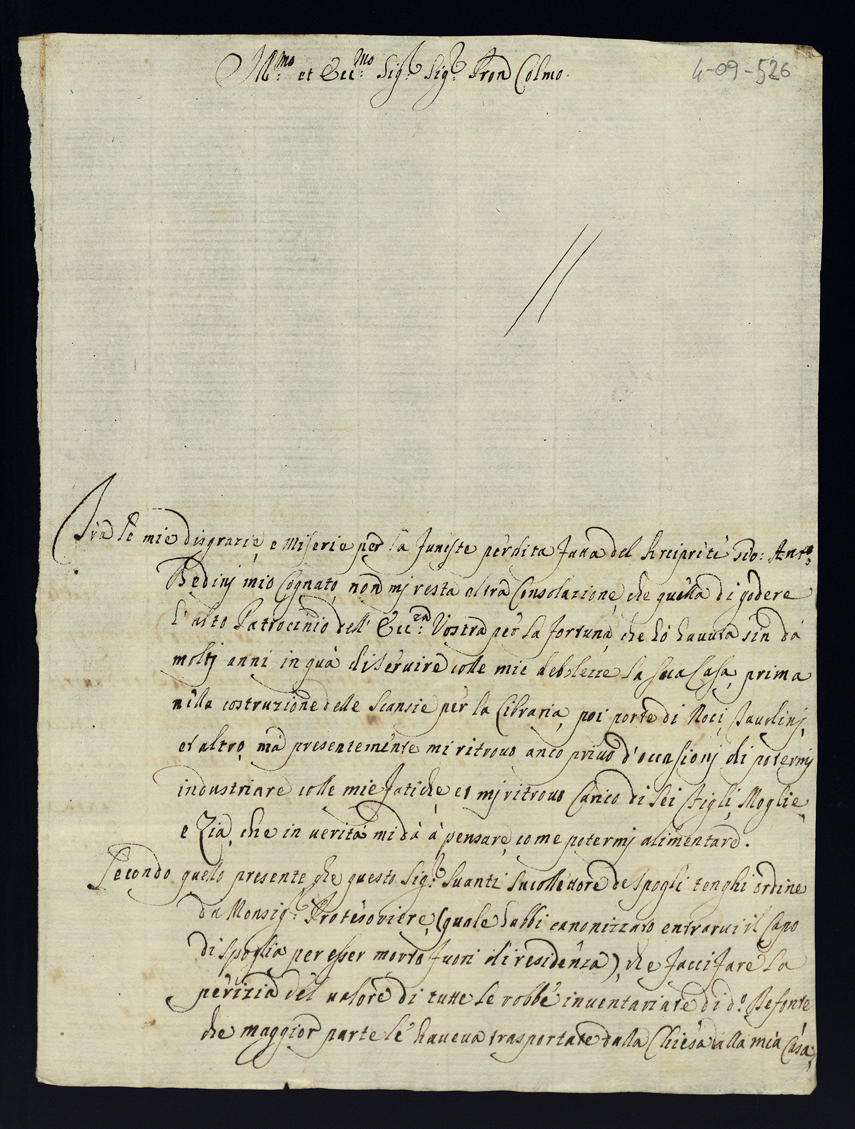 Ill.mo et Ecc.mo Sig.r Sig.r Pron Colmo.
4-09-526
Frà le mie disgrazie, e miserie per la funeste perdita fatta del Arciprete Gio: Ant.o
Bedinj mio Cognato, non mj resta altra Consolazione, che quella di godere
l'alto Patrocinio dell'Ecc.za Vostra per la fortuna, che hò havuta sin da
moltj anni in quà di servire colle mie debolezze la sua Casa, prima
nella costruzione delle Scansie per la Libraria, poi porte di Noci, Taulinj,
et altro, mà presentemente mi ritrovo anco privo d'occasionj di potermj
industriare colle mie fatiche, et mj ritrovo Carico di sei figlj, Moglie,
e Zia, che in verità mi dà à pensare, come potermj alimentare.
Secondo quello presente che questo Sig.r Suanti Succollettore de Spoglj tenghi ordine
da Monsig.r Protesoriere, (quale habbi canonizzato entrarvi il Capo
di spoglia per esser morto fuori di residenza), che facci fare la
perizia del valore di tutte le robbe inventariate di d.o Defonto
che maggior parte le haveva trasportate dalla Chiesa alla mia Casa,